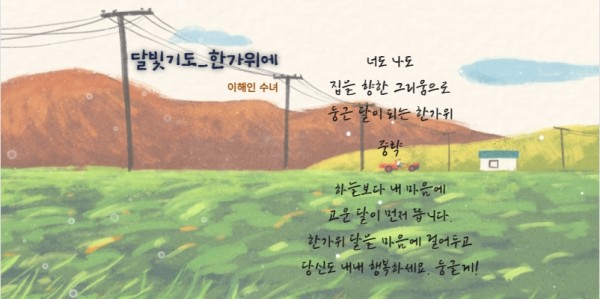 달빛기도_한가위에
이해인 수녀
너도 나도
집을 향한 그리움으로
둥근 달이 되는 한가위
중략
하늘보다 내 마음에
고운 달이 먼저 뜹니다.
한가위 달을 마음에 걸어두고
당신도 내내 행복하세요, 둥글게!